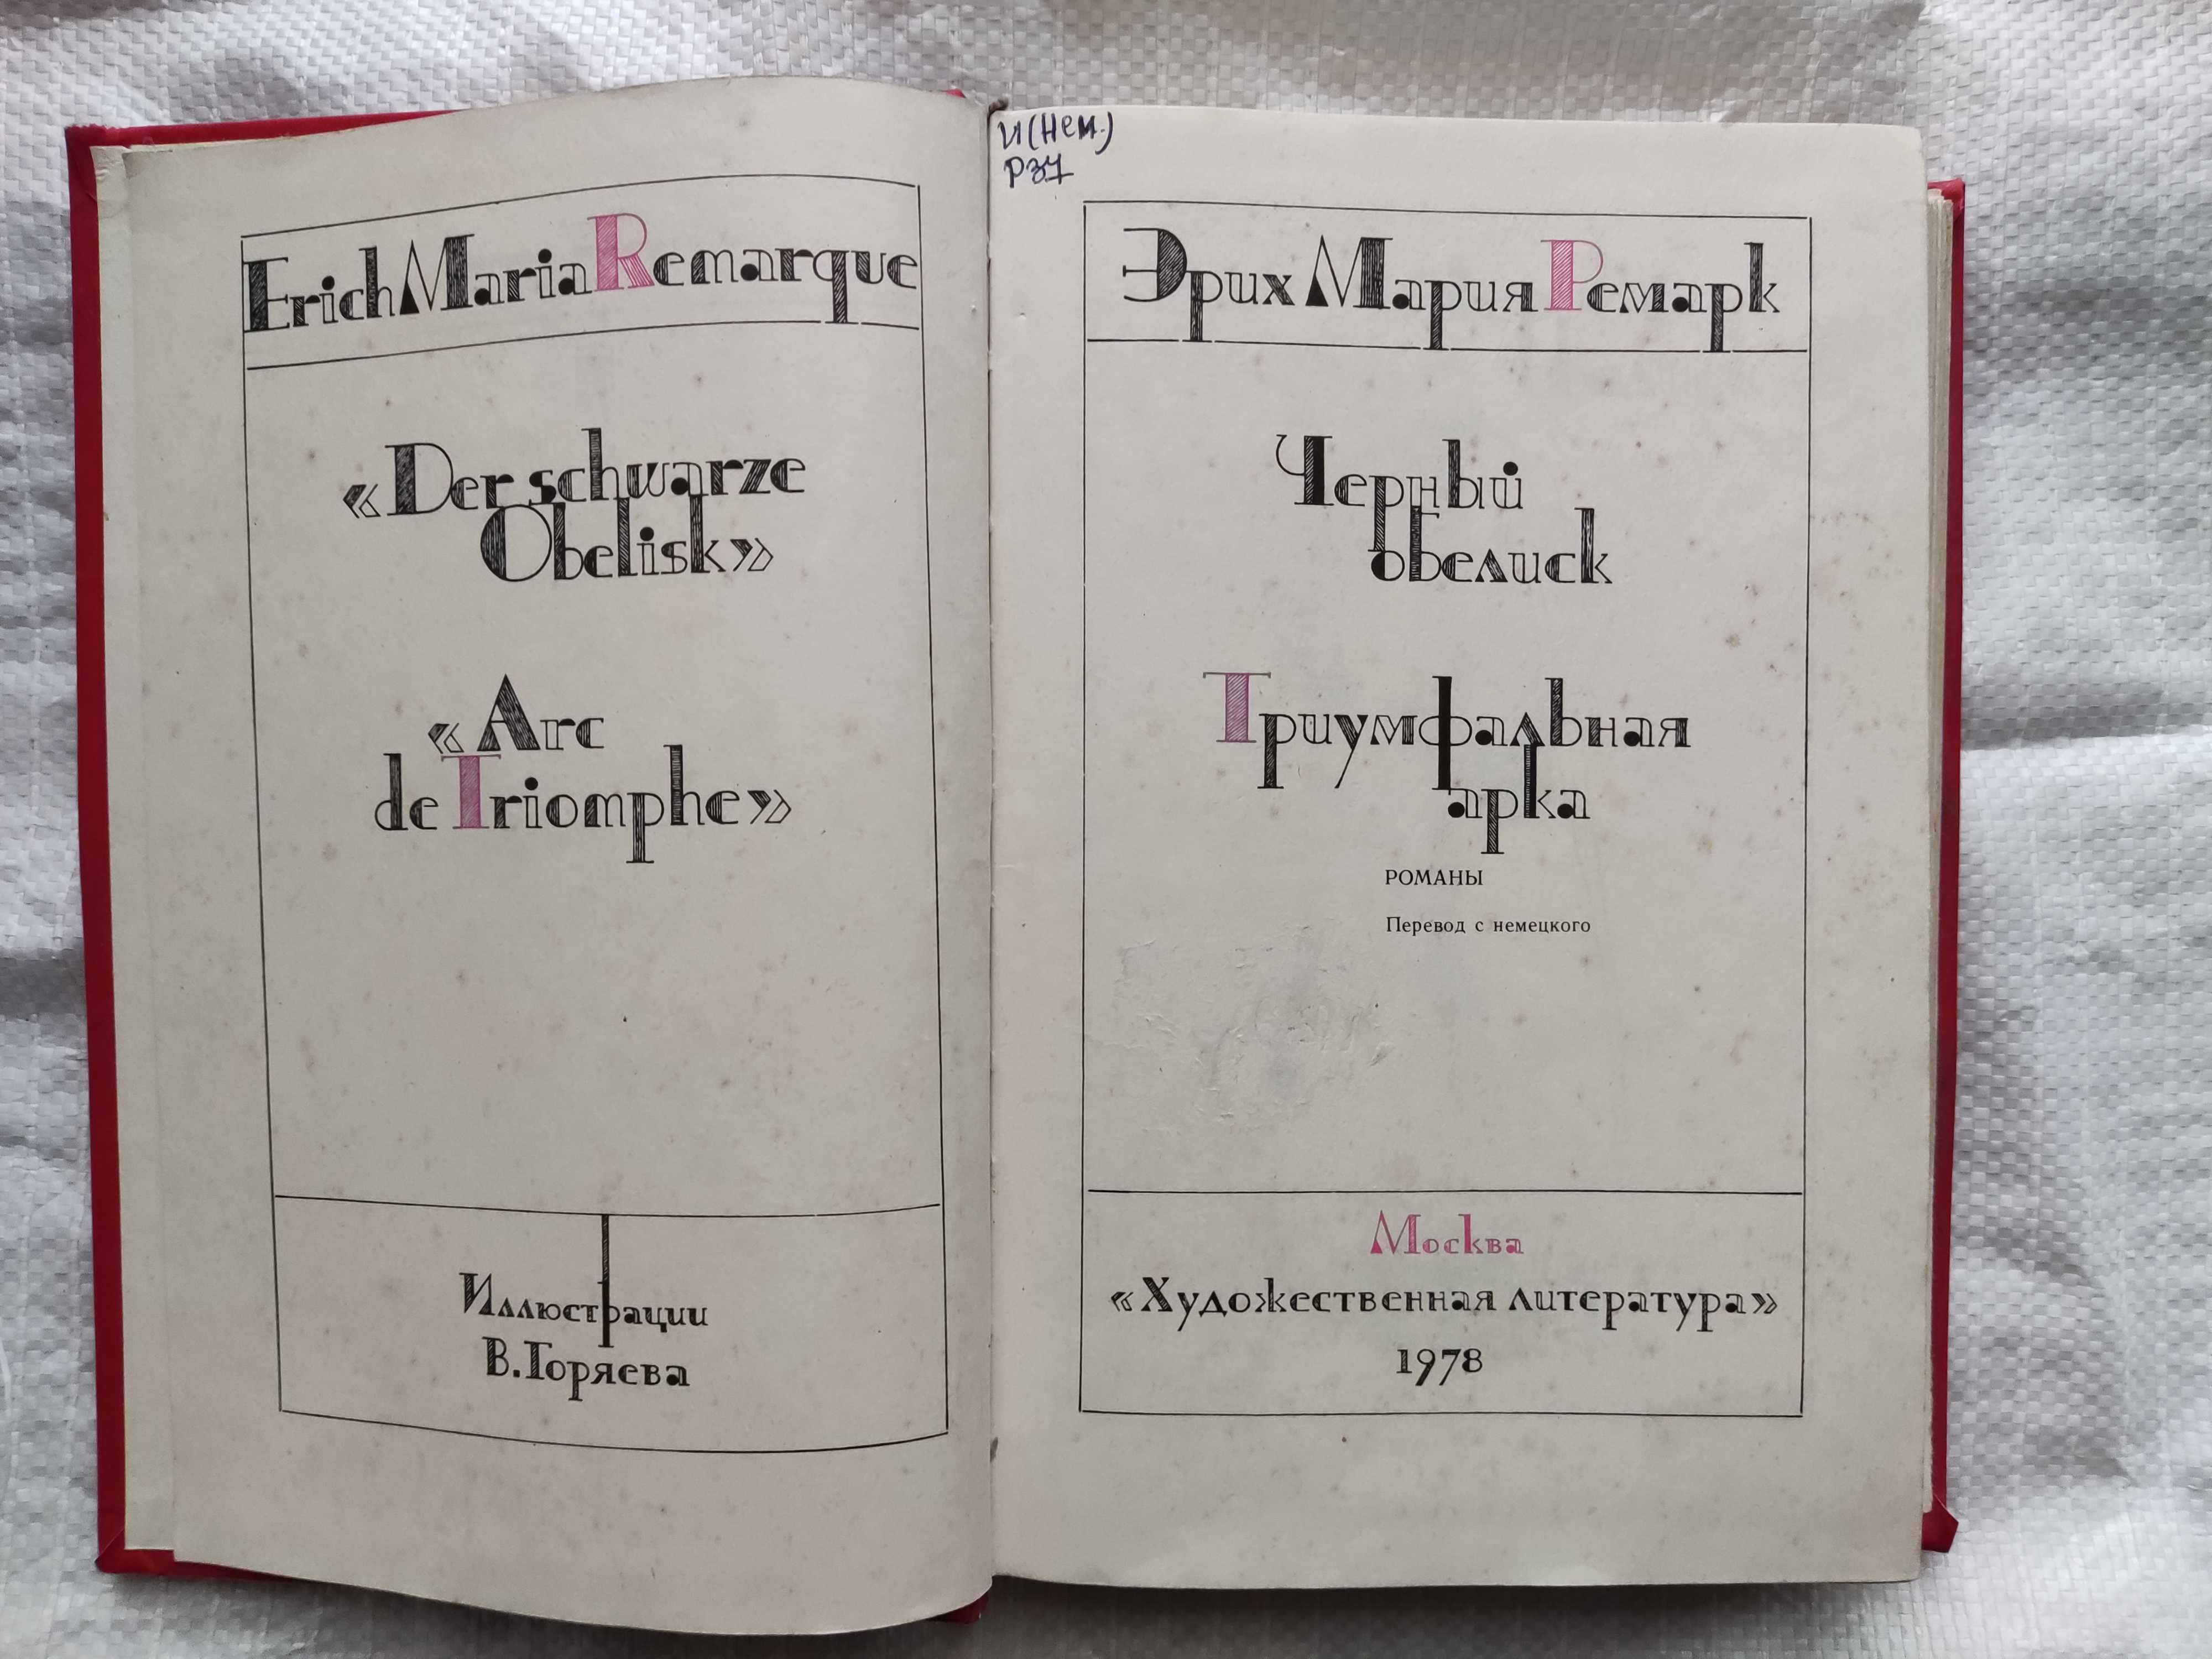 Erich Maria Remarque
«Der schwarze
Obelisk»
«Arc
de Triomphe»
Иллюстрации
В. Горяева
И(Нем.)
Р37
Эрих Мария Ремарк
Черный
обелиск
Триумфальная
арка
РОМАНЫ
Перевод с немецкого
Москва
«Художественная литература»
1978